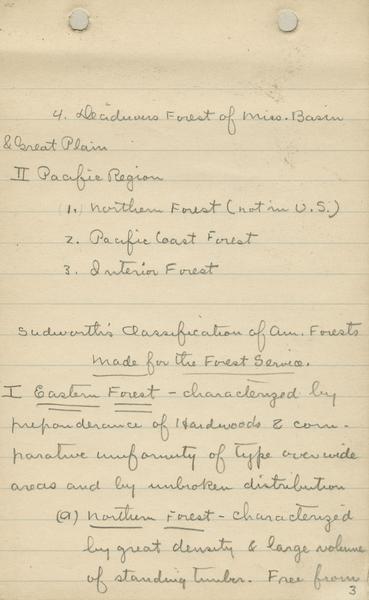 4. Deciduous Forest of Miss. Basin
& Great Plain
II Pacific Region
(1.) Northern Forest (not in U.S.)
2. Pacific Coast Forest
3. Interior Forest
Sudworth's Classification of Am. Forests
Made for the Forest Service.
I Eastern Forest - characterized by
preponderance of Hardwoods & com-
parative uniformity of type over wide
areas and by unbroken distribution
(a) Northern Forest - characterized
by great density & large volume
of standing timber. Free from
3